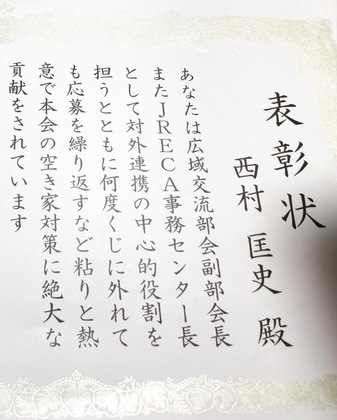 表彰状
西村 匡史 殿
あなたは広域交流部会副部会長
またJRECA事務センター長
として対外連携の中心的役割を
担うとともに何度くじに外れて
も応募を繰り返すなど粘りと熱
意で本会の空き家対策に絶大な
貢献をされています